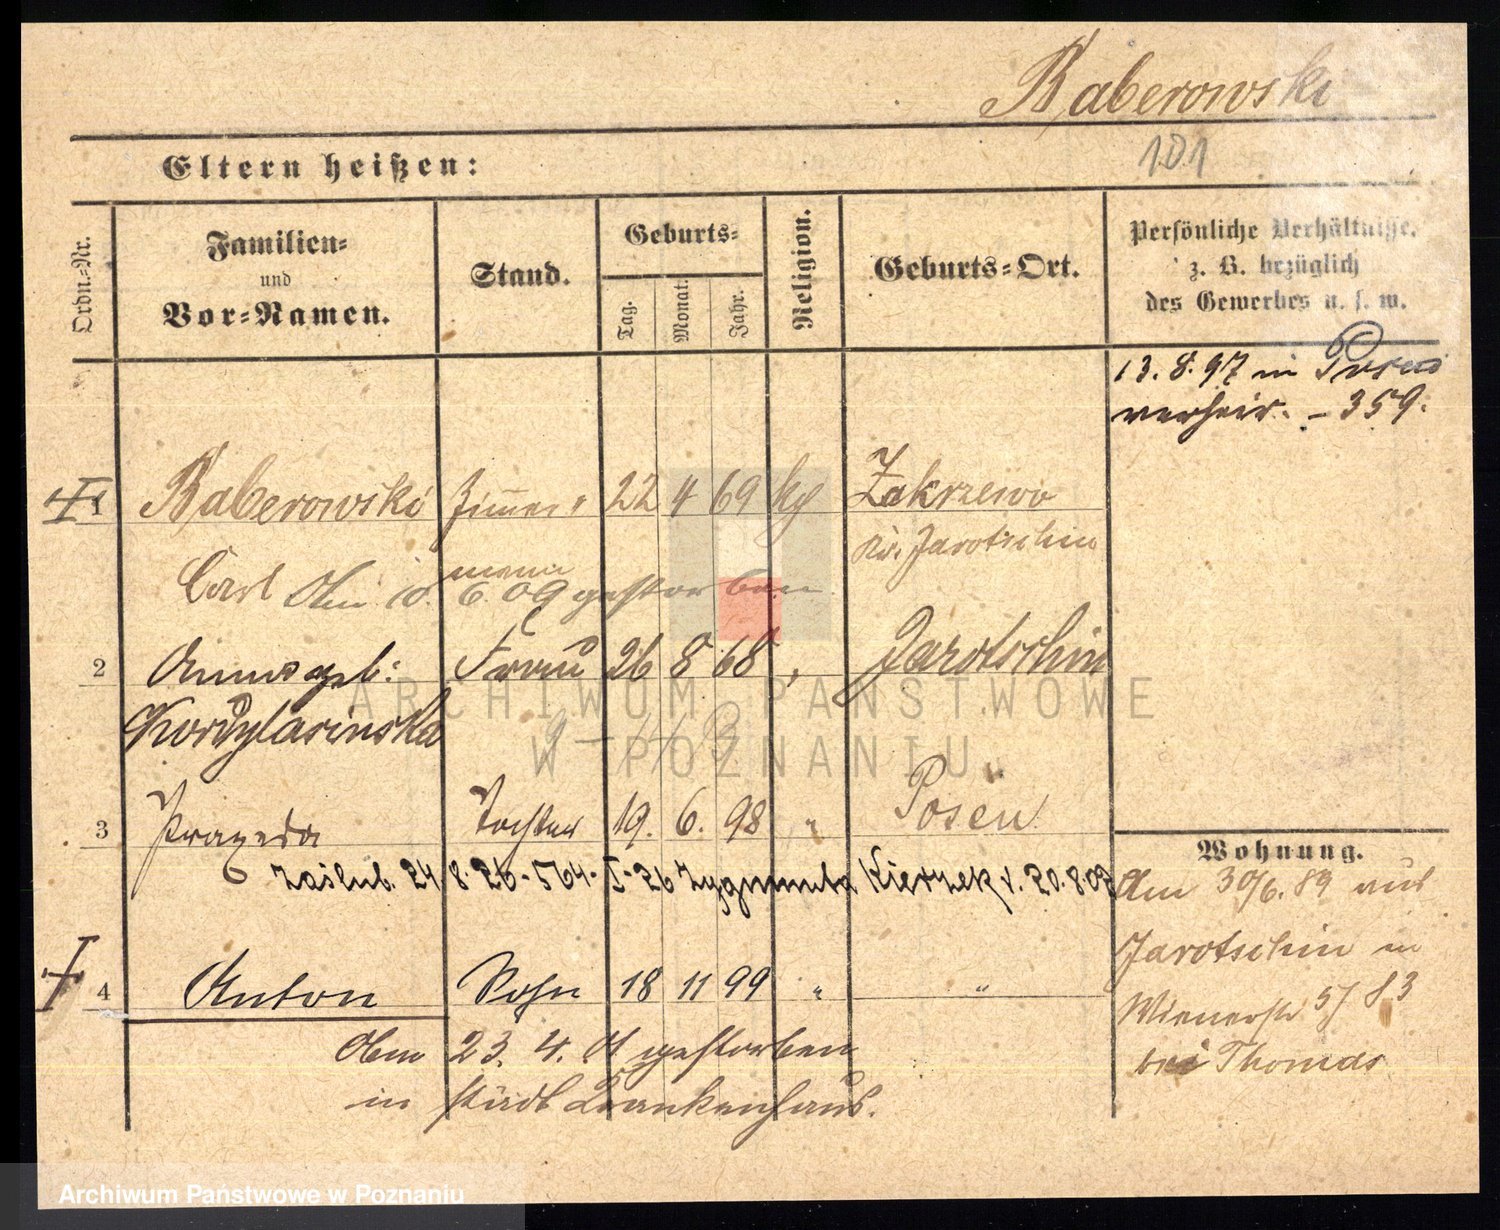 Raberowski
101
Eltern heißen:
Ordn.-Nr.
Familien-
und
Vor-Namen.
Stand.
Geburts-
Tag.
Monat.
Jahr.
Religion.
Geburts-Ort.
Persönliche Verhältnisse.
z. B. bezüglich
des Gewerbes u. s. w.
13. 8. 97 in Posen
verheir. - 359.
1 Raberowski Zimmer= 22 4 69 kg Zakrzewo
mann Kr. Jarotschin
Carl Am 10. 6. 09 gestorben
2 Anna geb: Frau 26 8 68 " Jarotschin
3 Praxeda Tochter 19. 6. 98 " Posen
zaślub. 24 8. 26 - 564 - I - 26 Zygmunta 20. 8. 02
4 Anton Sohn 18 11 99 " "
Am 23. 4. gestorben
in städt Krankenhaus.
Wohnung.
Am 30/6. 89 aus
Jarotschin in
Wienerstr 5/ 83
bei Thomas
ARCHIWUM PAŃSTWOWE
W POZNANIU
Archiwum Państwowe w Poznaniu